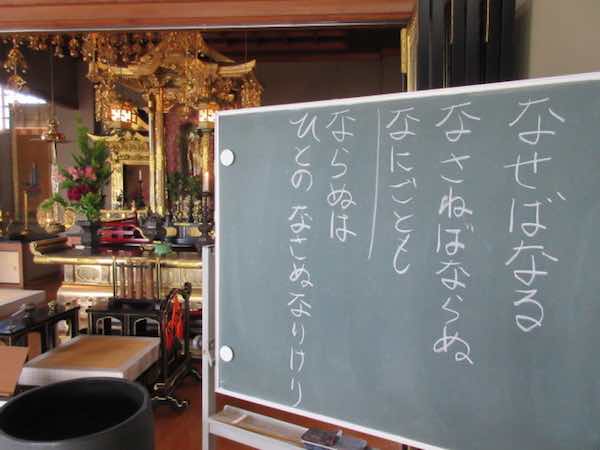 なせばなる
なさねばならぬ
なにごとも
ならぬは
ひとの なさぬなりけり